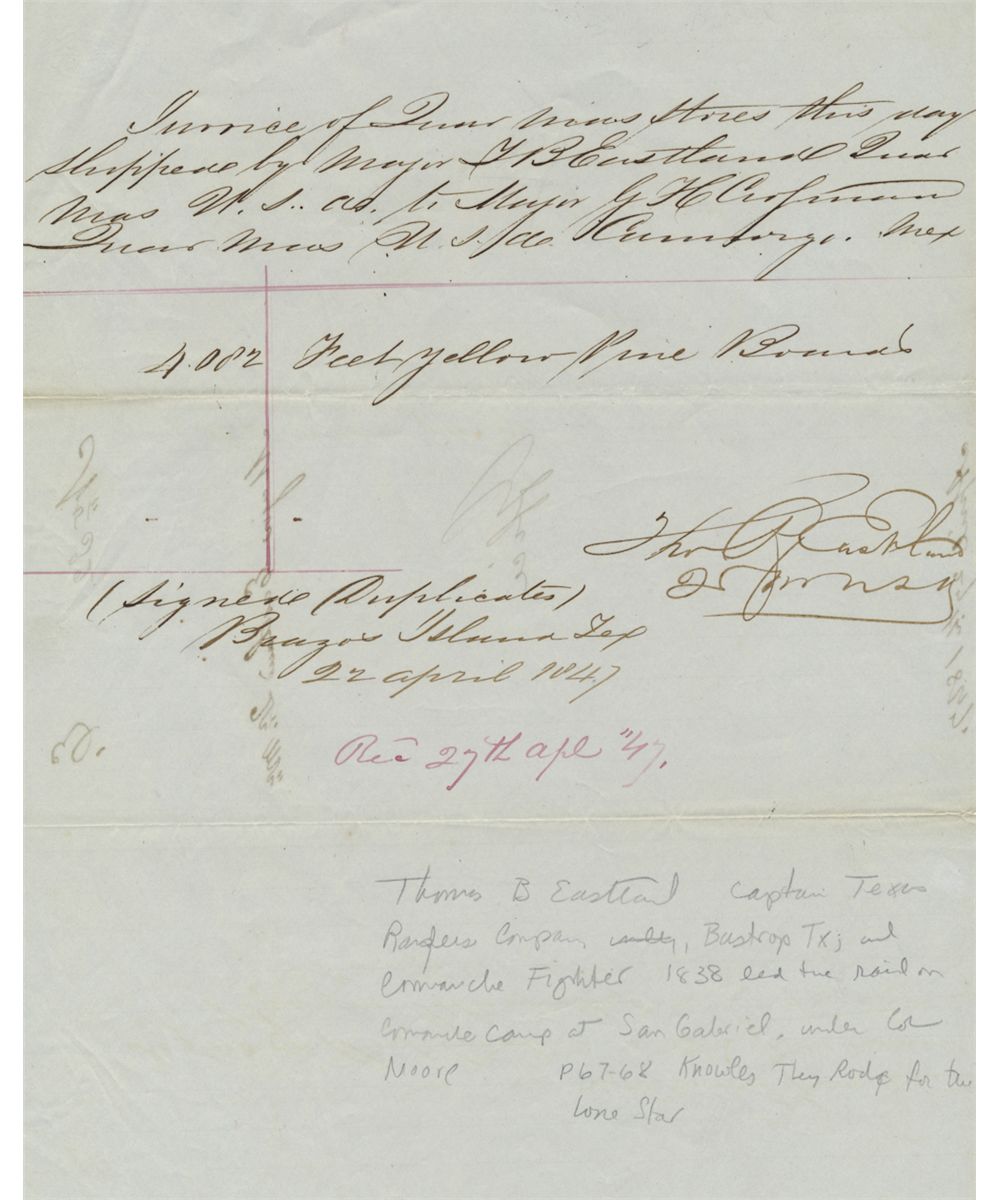 Invoice of Quar Mas Stores this day
shipped by Major T B Eastland Quar
Mas U. S. a. to Major G H Crosman
Quar Mas U S a Camargo. Mex
4.082 Feet Yellow Pine Boards
Tho B Eastland
Qr Mr U S A
(Signed Duplicates)
Brazos Island Tex
22 april 1847
Rec 27th apl "47.
Thomas B Eastland Captain Texas
Rangers Company, Bastrop Tx; and
Comanche Fighter 1838 led the raid on
Comanche camp at San Gabriel, under Col
Moore P67-68 Knowles They Rode for the
Lone Star